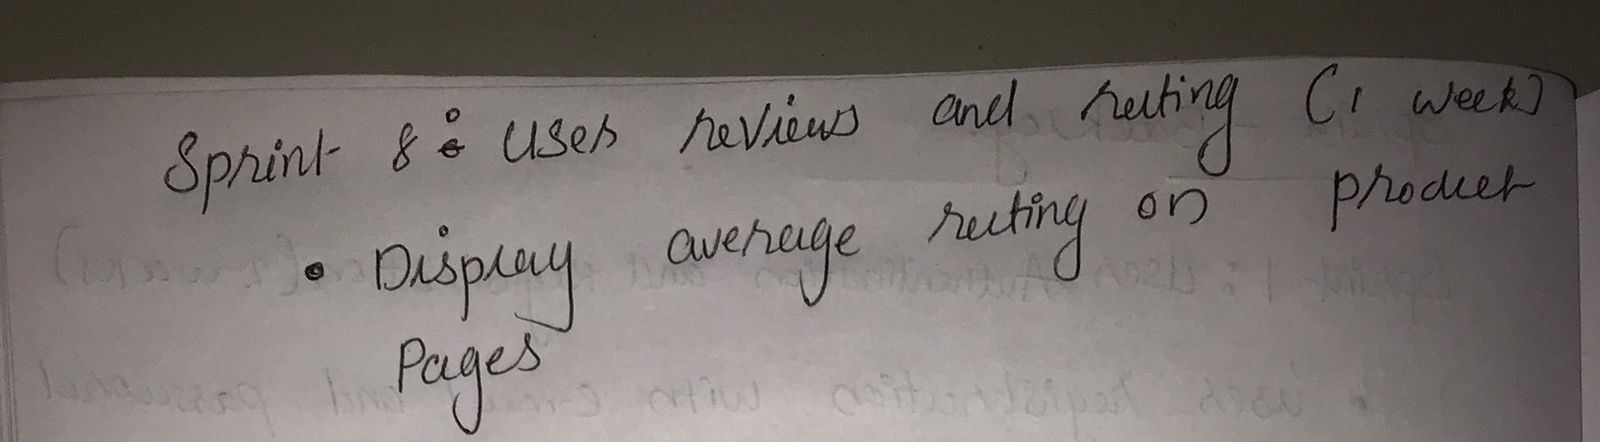 Sprint 8: User reviews and rating (1 week)
• Display average rating on product
Pages